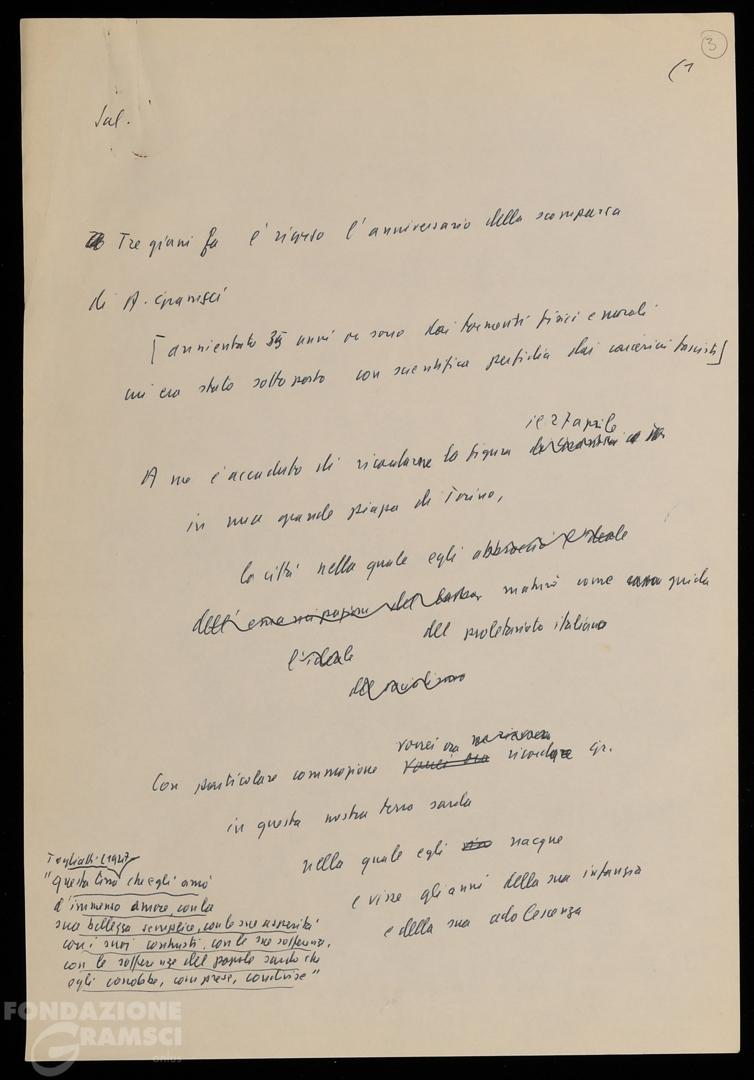 3
(1
Sal.
Tre giorni fa è ricorso l'anniversario della scomparsa
di A. Gramsci
[annientato 35 anni or sono dai tormenti fisici e morali
cui era stato sottoposto con scientifica perfidia dai carcerieri fascisti]
il 27 aprile
A me è accaduto di ricordarne la figura
in una grande piazza di Torino,
la città nella quale egli abbracciò l'ideale
dell'emancipazione del maturò come guida
del proletariato italiano
l'ideale
del socialismo
vorrei ora
Con particolare commozione vorrei ora ricordare Gr.
in questa nostra terra sarda
nella quale egli nacque
e visse gli anni della sua infanzia
e della sua adolescenza
Togliatti (1947)
"Questa terra che egli amò
d'immenso amore, con la
sua bellezza semplice, con le sue asperità
con i suoi contrasti, con le sue sofferenze,
con le sofferenze del popolo sardo che
egli conobbe, comprese, condivise"
FONDAZIONE
GRAMSCI
onlus